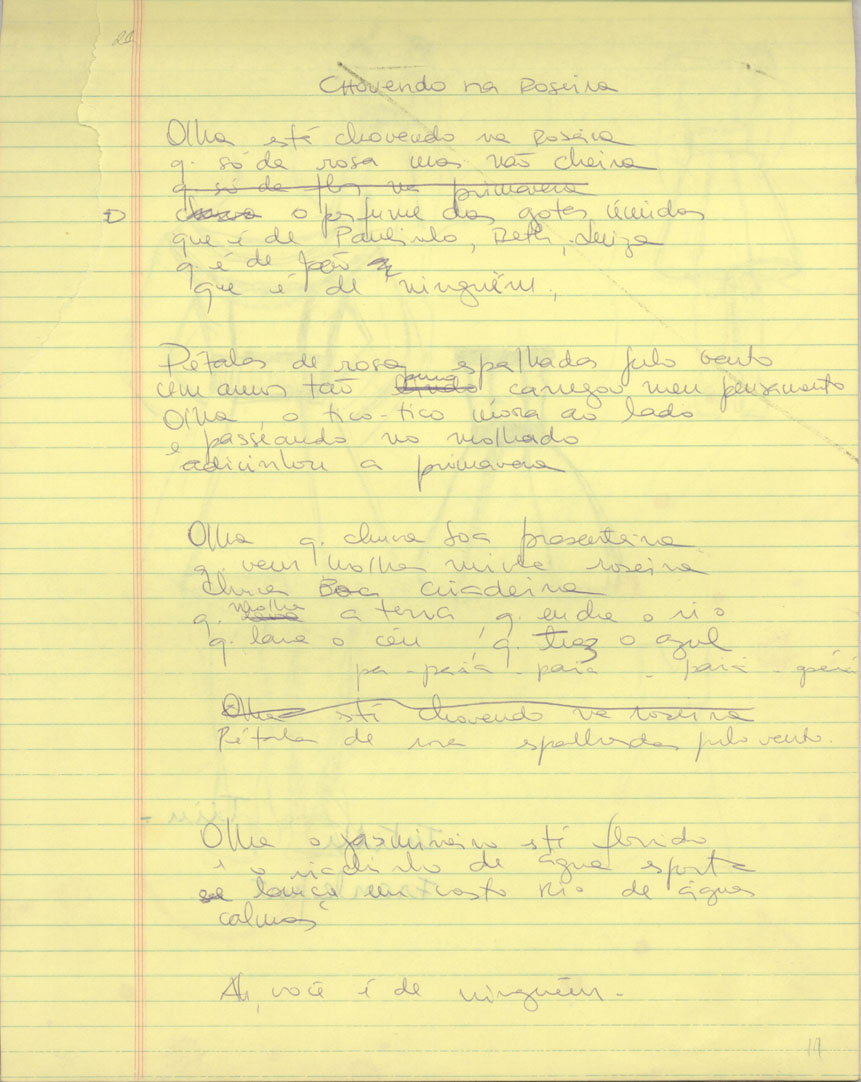 Chovendo na Roseira
Olha está chovendo na Roseira
q. só dá rosa mas não cheira
q. só dá flor na primavera
o perfume das gotas úmidas
que é de Paulinho, Beth, Luiza
q é de João
que é de ninguém,
Pétalas de rosa espalhadas pelo vento
um amor tão puro carregou meu pensamento
Olha o tico-tico mora ao lado
e passeando no molhado
adivinhou a primavera
Olha q. chuva boa prazenteira
q. vem molha minha roseira
chuva Boa criadeira
q. molha a terra q. enche o rio
q. lava o céu q. traz o azul
pa - paiá - paiá - paiá -
Olha stá chovendo na roseira
Pétala de rosa espalhadas pelo vento.
Olha o jasmineiro stá florido
e o riachinho de água esperta
se lança em vasto rio de águas
calmas
Ah, você é de ninguém -
19